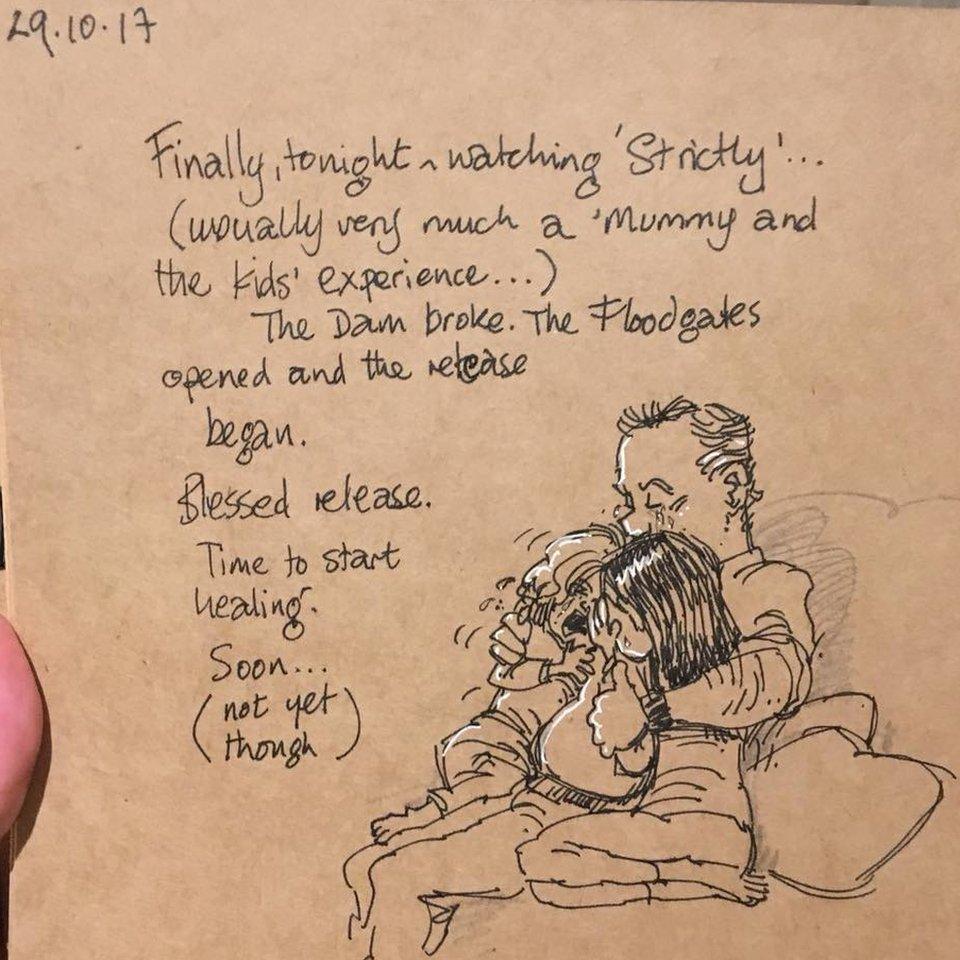 29.10.17
Finally, tonight ~ watching 'Strictly'...
(usually very much a 'Mummy and
the kids' experience...)
The Dam broke. The Floodgates
opened and the release
began.
Blessed release.
Time to start
healing.
Soon...
(not yet
though)